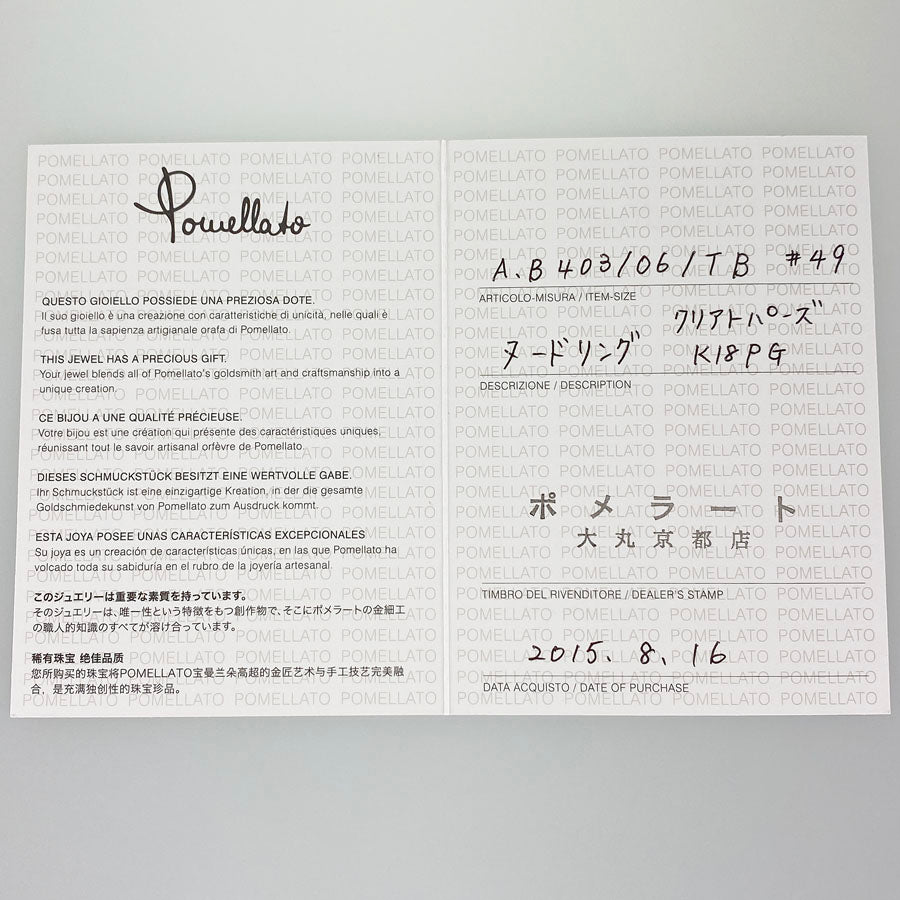 Pomellato
QUESTO GIOIELLO POSSIEDE UNA PREZIOSA DOTE.
Il suo gioiello è una creazione con caratteristiche di unicità, nelle quali è
fusa tutta la sapienza artigianale orafa di Pomellato.
THIS JEWEL HAS A PRECIOUS GIFT.
Your jewel blends all of Pomellato's goldsmith art and craftsmanship into a
unique creation.
CE BIJOU A UNE QUALITÉ PRÉCIEUSE.
Votre bijou est une création qui présente des caractéristiques uniques,
réunissant tout le savoir artisanal orfèvre de Pomellato.
DIESES SCHMUCKSTÜCK BESITZT EINE WERTVOLLE GABE.
Ihr Schmuckstück ist eine einzigartige Kreation, in der die gesamte
Goldschmiedekunst von Pomellato zum Ausdruck kommt.
ESTA JOYA POSEE UNAS CARACTERÍSTICAS EXCEPCIONALES
Su joya es un creación de características únicas, en las que Pomellato ha
volcado toda su sabiduría en el rubro de la joyería artesanal.
このジュエリーは重要な素質を持っています。
そのジュエリーは、唯一性という特徴をもつ創作物で、そこにポメラートの金細工
の職人的知識のすべてが溶け合っています。
稀有珠宝 绝佳品质
您所购买的珠宝将POMELLATO宝曼兰朵高超的金匠艺术与手工技艺完美融
合，是充满独创性的珠宝珍品。
A.B403/06/TB #49
ARTICOLO-MISURA / ITEM-SIZE
クリアトパーズ
ヌードリング K18PG
DESCRIZIONE / DESCRIPTION
ポメラート
大丸京都店
TIMBRO DEL RIVENDITORE / DEALER'S STAMP
2015.8.16
DATA ACQUISTO / DATE OF PURCHASE